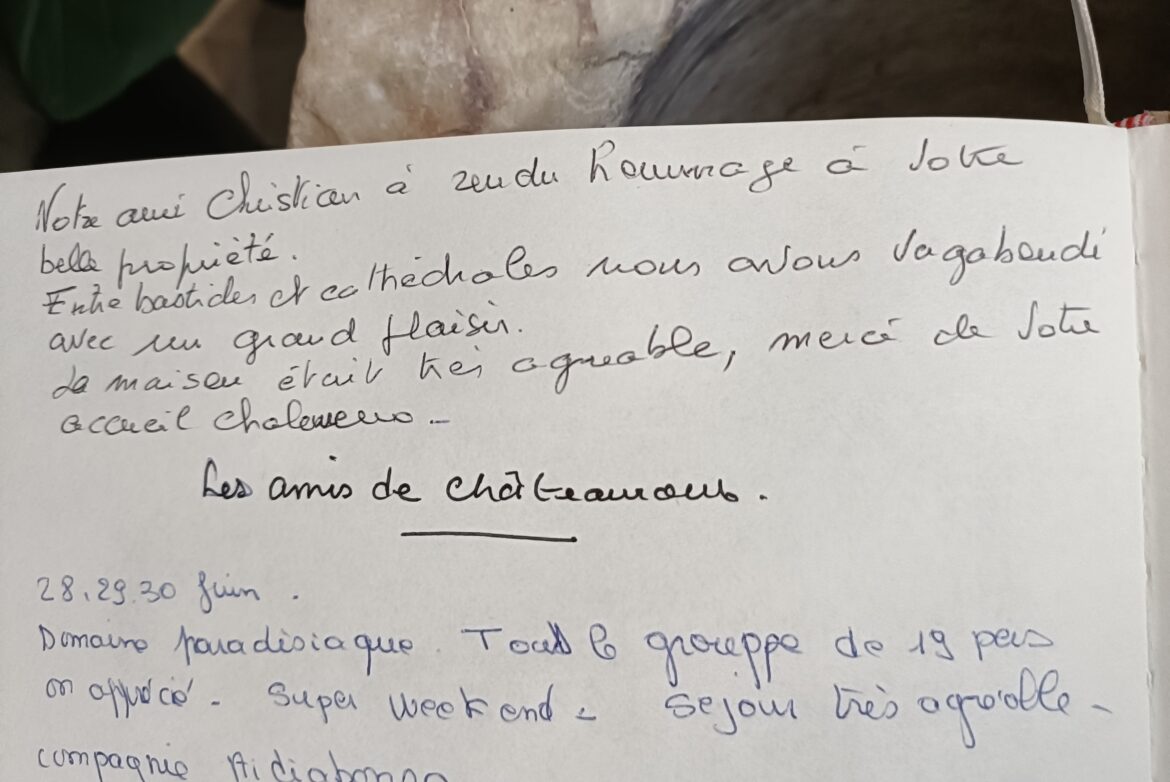 Notre ami Christian à rendu hommage à votre
belle propriété.
Entre bastides et cathédrales nous avons vagabondé
avec un grand plaisir.
La maison était très agréable, merci de votre
accueil chaleureux -
Les amis de Châteauroux.
28.29.30 Juin.
Domaine paradisiaque. Tout le grouppe de 19 pers
on apprécié. Super week end - Sejour très agréable -
compagnie